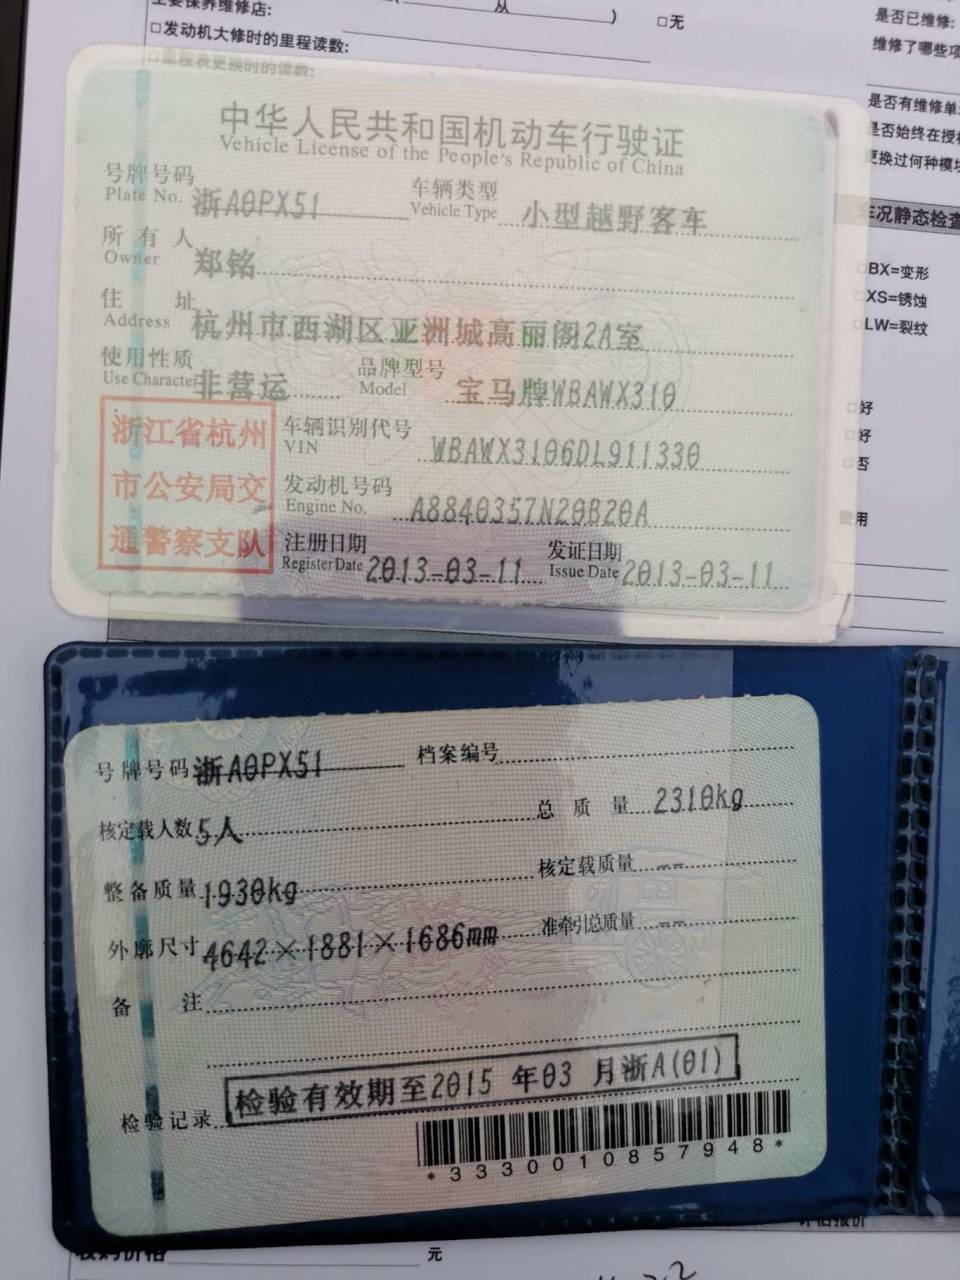 主要保养维修店:
从 ) □无
□发动机大修时的里程读数:
□里程表更换时的读数:
是否已维修:
维修了哪些项
是否有维修单
是否始终在授权
更换过何种模块
车况静态检查
□BX=变形
□XS=锈蚀
□LW=裂纹
□好
□好
□否
费用
中华人民共和国机动车行驶证
Vehicle License of the People's Republic of China
号牌号码 浙A0PX51 车辆类型 小型越野客车
Plate No. Vehicle Type
所有人 郑铭
Owner
住址 杭州市西湖区亚洲城高丽阁2A室
Address
使用性质 非营运 品牌型号 宝马牌WBAWX310
Use Character Model
浙江省杭州
市公安局交
通警察支队
车辆识别代号 WBAWX3106DL911330
VIN
发动机号码 A8840357N20B20A
Engine No.
注册日期 2013-03-11 发证日期 2013-03-11
Register Date Issue Date
号牌号码 浙A0PX51 档案编号
核定载人数 5人 总质量 2310kg
整备质量 1930kg 核定载质量 --
外廓尺寸 4642×1881×1686mm 准牵引总质量 --
备注
检验有效期至2015 年03 月浙A(01)
检验记录
*3330010857948*
收购价格 元
评估报价